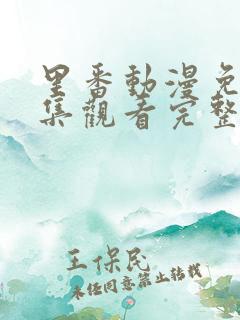 里番動漫免
集觀看完整
王保民
未经同意禁止转载